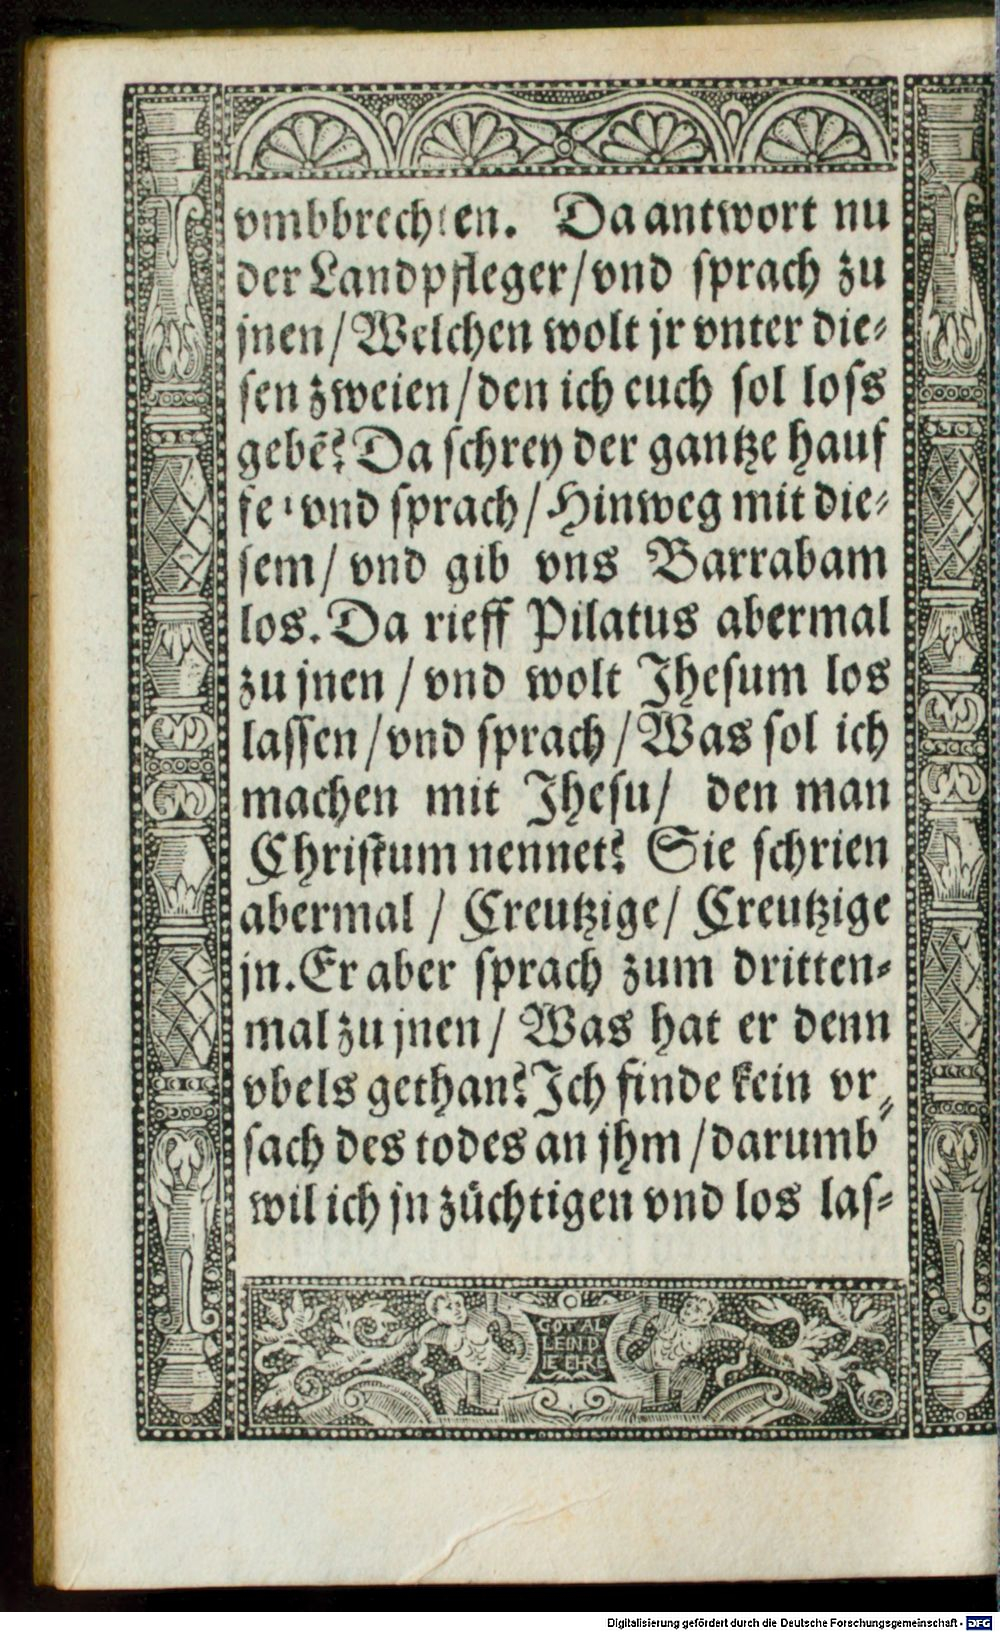 vmbbrechten. Da antwort nu
der Landpfleger/vnd sprach zu
jnen/Welchen wolt jr vnter die⸗
sen zweien/den ich euch sol loss
gebẽ? Da schrey der gantze hauf
fe/vnd sprach/Hinweg mit die⸗
sem/ vnd gib vns Barrabam
los. Da rieff Pilatus abermal
zu jnen / vnd wolt Jhesum los
lassen/vnd sprach/Was sol ich
machen mit Jhesu/ den man
Christum nennet? Sie schrien
abermal / Creutzige/ Creutzige
jn. Er aber sprach zum dritten⸗
mal zu jnen/ Was hat er denn
vbels gethan? Ich finde kein vr⸗
sach des todes an jhm/darumb
wil ich jn züchtigen vnd los las⸗
GOT AL
LEIN D
IE EHRE
Digitalisierung gefördert durch die Deutsche Forschungsgemeinschaft - DFG